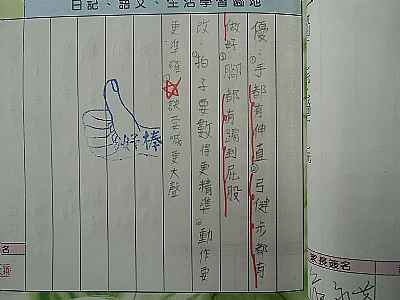 日記、語文、生活學習園地
優：①手都有伸直②弓健步都有
做好③腳都有踢到屁股
改：①拍子要數得更精準②動作要
更準確③訣要喊更大聲
好棒
家長簽名
名